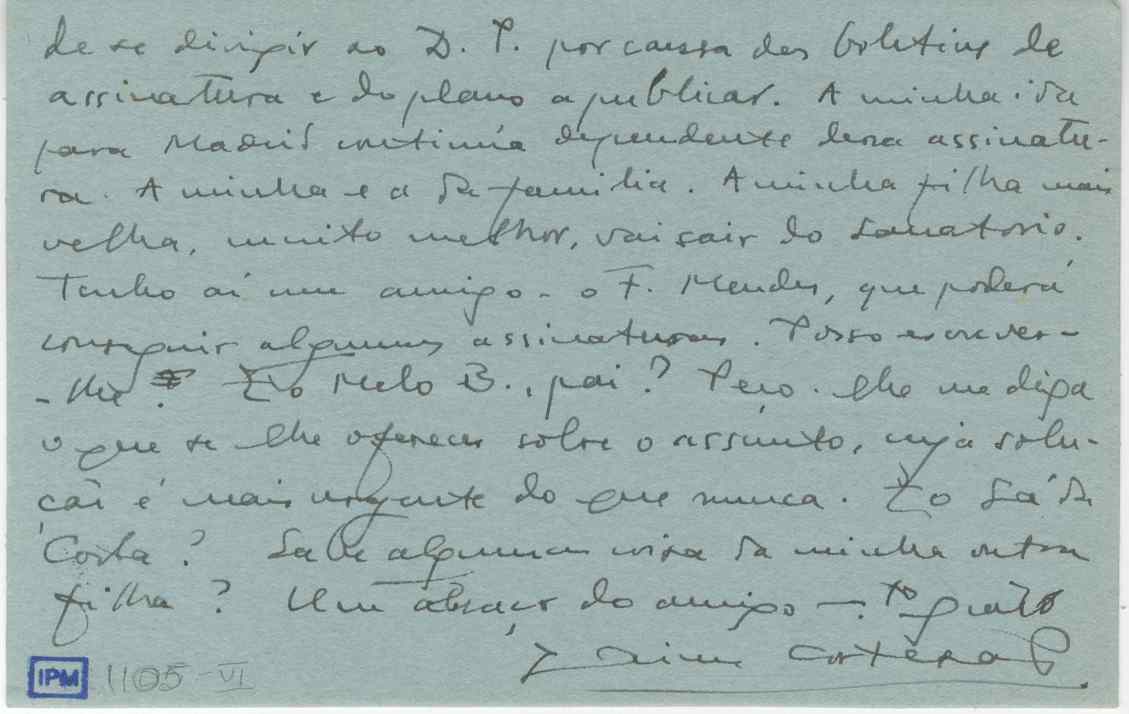 de se dirigir ao D. P. por causa dos boletins de
assinatura e do plano a publicar. A minha ida
para Madrid continúa dependente dessa assinatu-
ra. A minha e a da familia. A minha filha mais
velha, muito melhor, vai sair do Sanatorio.
Tenho aí um amigo - o F. Mendes, que poderá
conseguir algumas assinaturas. Posso escrever-
-lhe? E o Melo B., pai? Peço-lhe me diga
o que se lhe oferecer sobre o assunto, cuja solu-
ção é mais urgente do que nunca. E o Sá da
Costa? Sabe alguma coisa da minha outra
filha? Um abraço do amigo - to grato
Jaime Cortesão
IPM 1105-VI